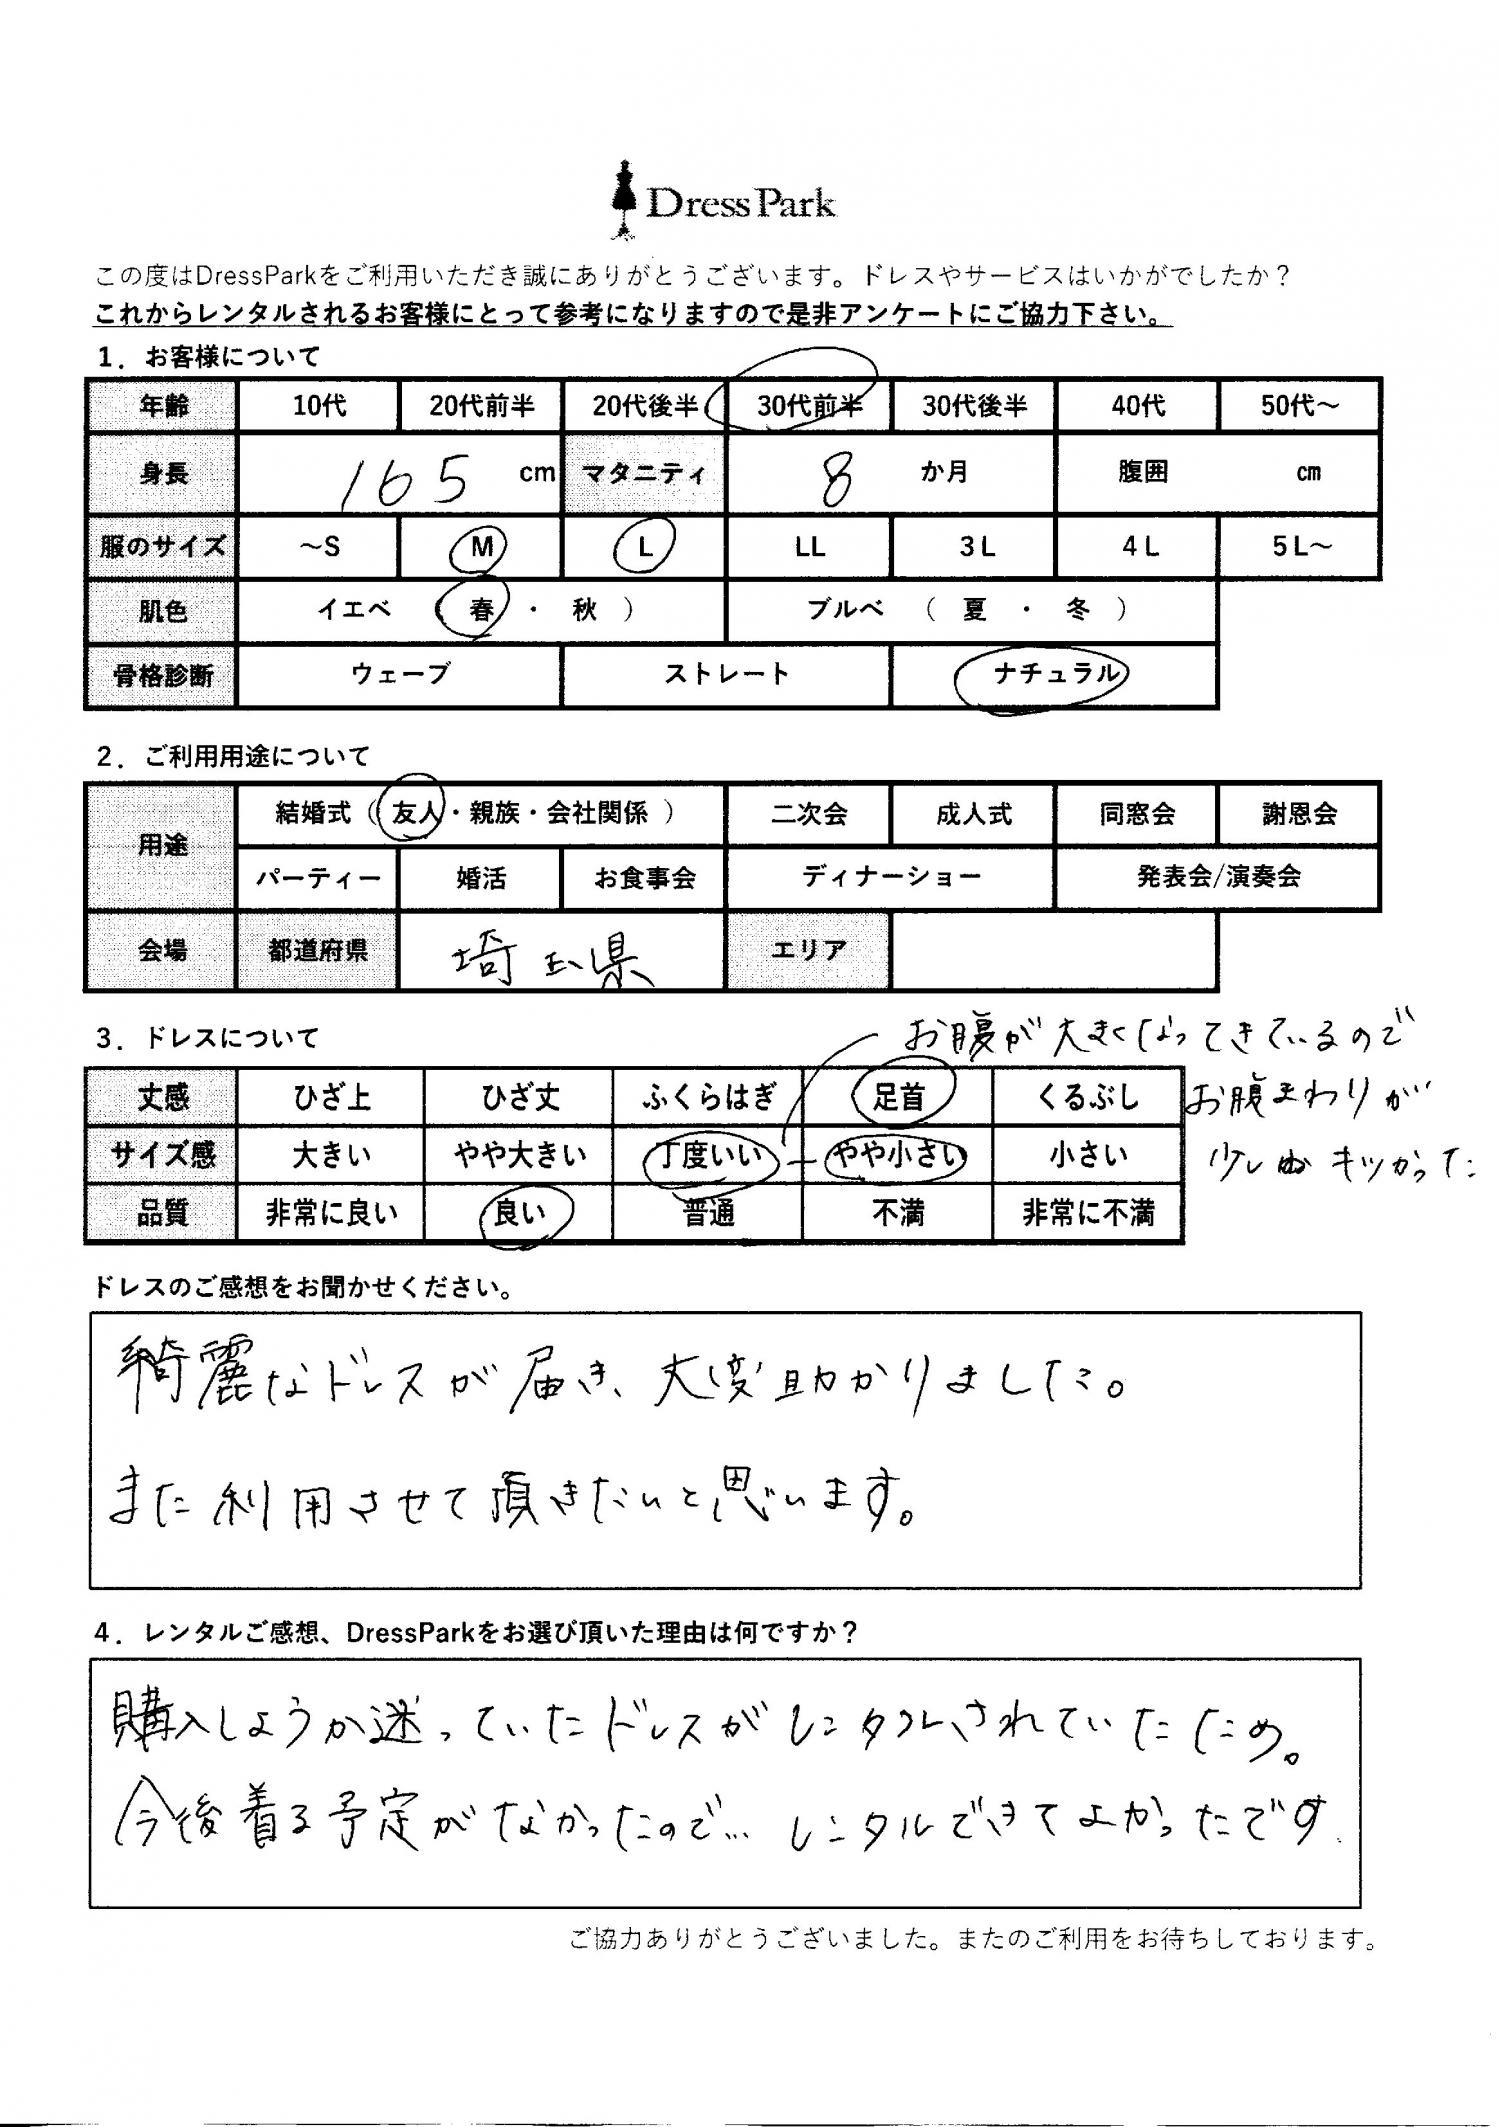 DressPark
この度はDressParkをご利用いただき誠にありがとうございます。ドレスやサービスはいかがでしたか？
これからレンタルされるお客様にとって参考になりますので是非アンケートにご協力下さい。
1．お客様について
年齢 10代 20代前半 20代後半 30代前半 30代後半 40代 50代～
身長 165 cm マタニティ 8 か月 腹囲 ㎝
服のサイズ ～S M L LL 3L 4L 5L～
肌色 イエベ （ 春 ・ 秋 ） ブルベ （ 夏 ・ 冬 ）
骨格診断 ウェーブ ストレート ナチュラル
2．ご利用用途について
用途 結婚式（ 友人・親族・会社関係 ） 二次会 成人式 同窓会 謝恩会
パーティー 婚活 お食事会 ディナーショー 発表会/演奏会
会場 都道府県 埼玉県 エリア
3．ドレスについて
お腹が大きくなってきているので
お腹まわりが
少しキツかった
丈感 ひざ上 ひざ丈 ふくらはぎ 足首 くるぶし
サイズ感 大きい やや大きい 丁度いい やや小さい 小さい
品質 非常に良い 良い 普通 不満 非常に不満
ドレスのご感想をお聞かせください。
綺麗なドレスが届き、大変助かりました。
また利用させて頂きたいと思います。
4．レンタルご感想、DressParkをお選び頂いた理由は何ですか？
購入しようか迷っていたドレスがレンタルされていたため。
今後着る予定がなかったので… レンタルできてよかったです
ご協力ありがとうございました。またのご利用をお待ちしております。